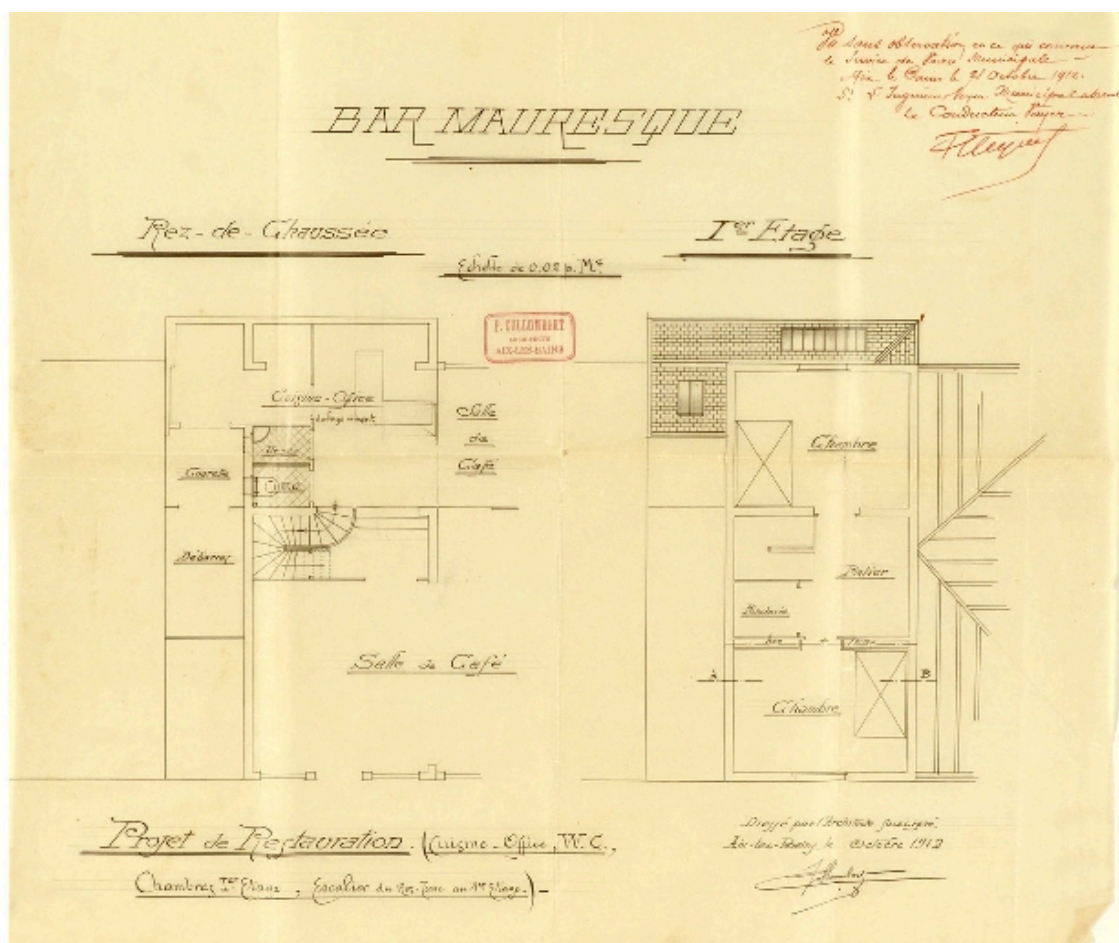 Vu sans observation en ce qui concerne
le Service de Voirie Municipale
Aix-les-Bains le 21 Octobre 1912.
Le Conducteur Voyer
BAR MAURESQUE
Rez-de-Chaussée
1er Etage
Echelle de 0.02 p. Mè
P. COLLOMBERT
ARCHITECTE
AIX-LES-BAINS
Cuisine-Office
Salle
de
Café
W.C.
Débarras
Salle de Café
Chambre
Palier
Penderie
A
B
Chambre
Projet de Restauration. (Cuisine-Office, W.C.,
Chambres 1er Etage, Escalier du Rez-
au 1er Etage.)
Dressé par l'Architecte soussigné,
Aix-les-Bains, le Octobre 1912